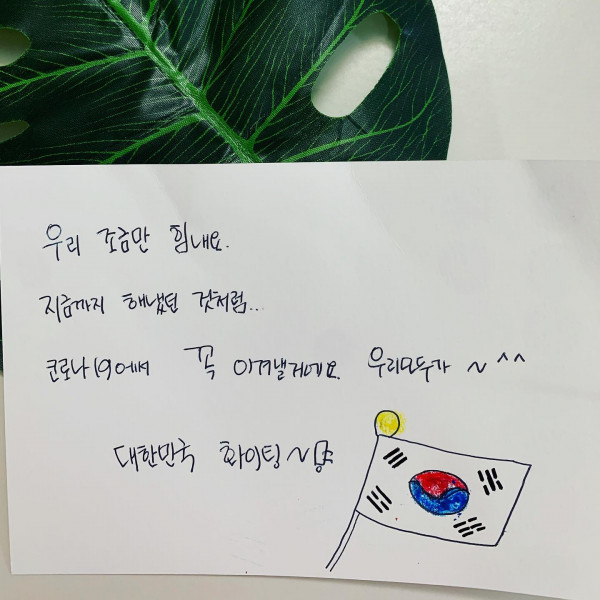 우리 조금만 힘내요.
지금까지 해냈던 것처럼...
코로나19에서 꼭 이겨낼거에요. 우리모두가 ~ ^^
대한민국 화이팅~